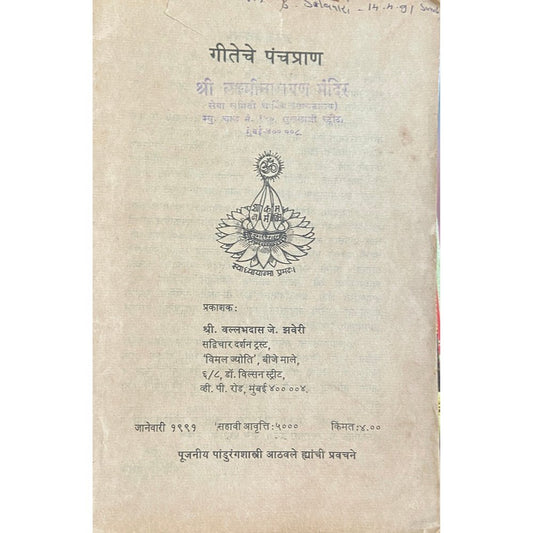 14.4.91
गीतेचे पंचप्राण
श्री लक्ष्मीनारायण मंदिर
मुंबई-४०० ००८
ॐ
स्वाध्यायान्मा प्रमदः।
प्रकाशक:
श्री. वल्लभदास जे. झवेरी
सद्विचार दर्शन ट्रस्ट,
'विमल ज्योति', बीजे माले,
६/८, डॉ. विल्सन स्ट्रीट,
व्ही. पी. रोड, मुंबई ४०० ००४.
जानेवारी १९९१ सहावी आवृत्ति:५००० किंमत:४.००
पूजनीय पांडुरंगशास्त्री आठवले ह्यांची प्रवचने